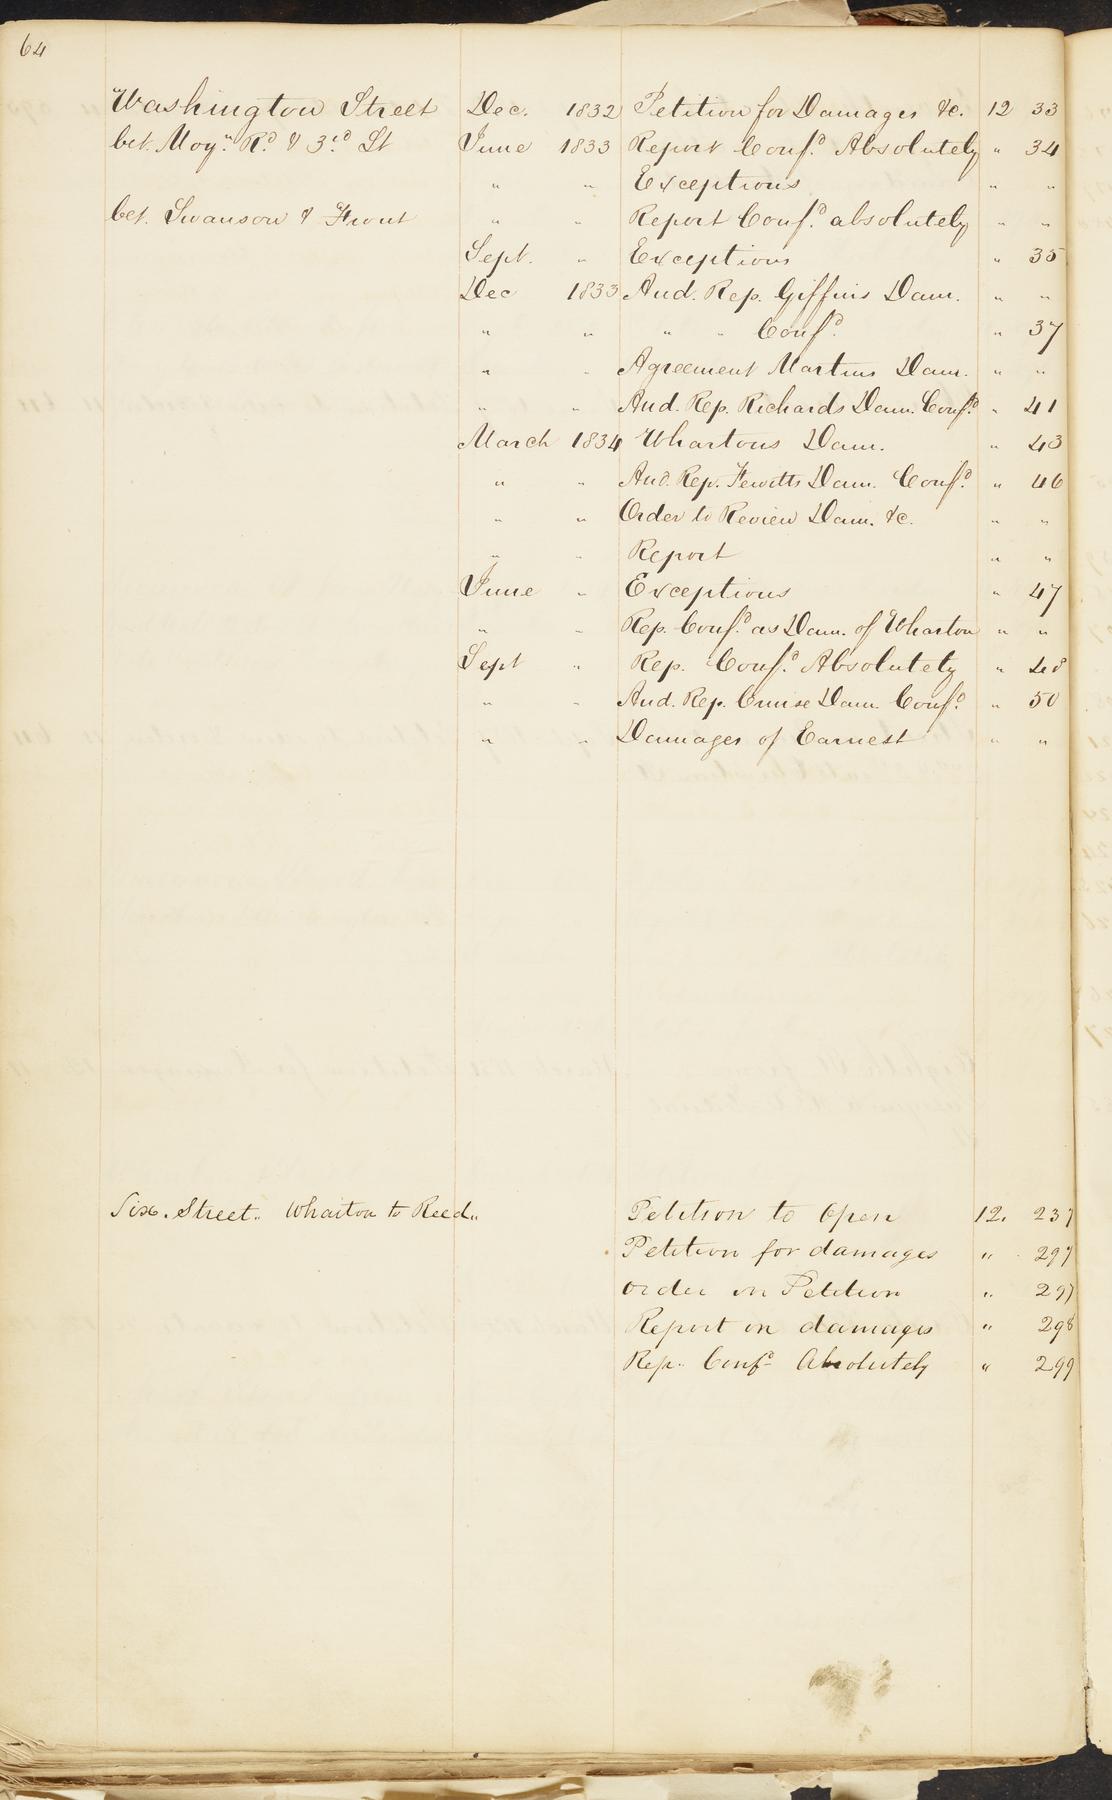 64
Washington Street Dec. 1832 Petition for Damages &c. 12 33
bet. Moy.n R.d & 3.rd St June 1833 Report Conf.d Absolutely " 34
" " Exceptions " "
bet. Swanson & Front " " Report Conf.d absolutely " "
Sept. " Exceptions " 35
Dec 1833 Aud. Rep. Giffins Dam. " "
" " " " Conf.d " 37
" " Agreement Martins Dam. " "
" " Aud. Rep. Richards Dam. Conf.d " 41
March 1834 Whartons Dam. " 43
" " Aud. Rep. Fewitts Dam. Conf.d " 46
" " Order to Review Dam. &c. " "
" " Report " "
June " Exceptions " 47
" " Rep. Conf.d as Dam. of Wharton " "
Sept " Rep. Conf.d Absolutely " 48
" " Aud. Rep. Cruise Dam. Conf.d " 50
" " Damages of Earnest " "
Six. Street.. Wharton to Reed.. Petition to Open 12. 237
Petition for damages " 297
order on Petition " 297
Report on damages " 298
Rep.. Conf.d Absolutely " 299